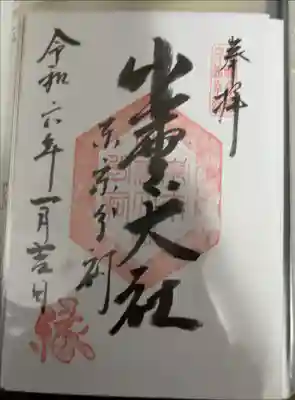 奉拝
出雲大社
東京分祠
令和六年一月吉日
縁